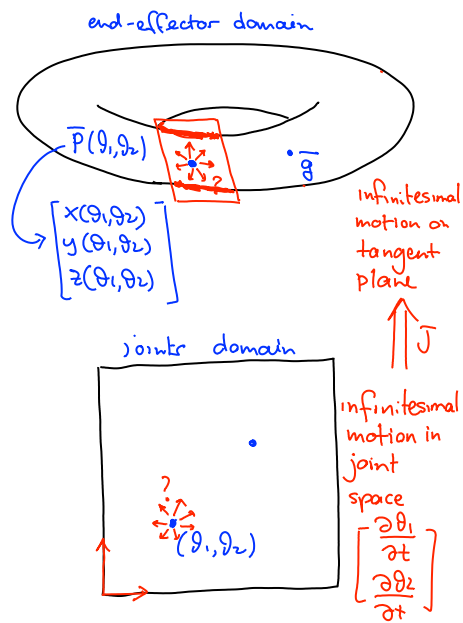 end-effector domain
p̅(θ₁,θ₂)
?
g̅
[x(θ₁,θ₂)
y(θ₁,θ₂)
z(θ₁,θ₂)]
infinitesimal
motion on
tangent
plane
J̅
joints domain
infinitesimal
motion in
joint
space
[∂θ₁
∂t
∂θ₂
∂t]
?
(θ₁,θ₂)